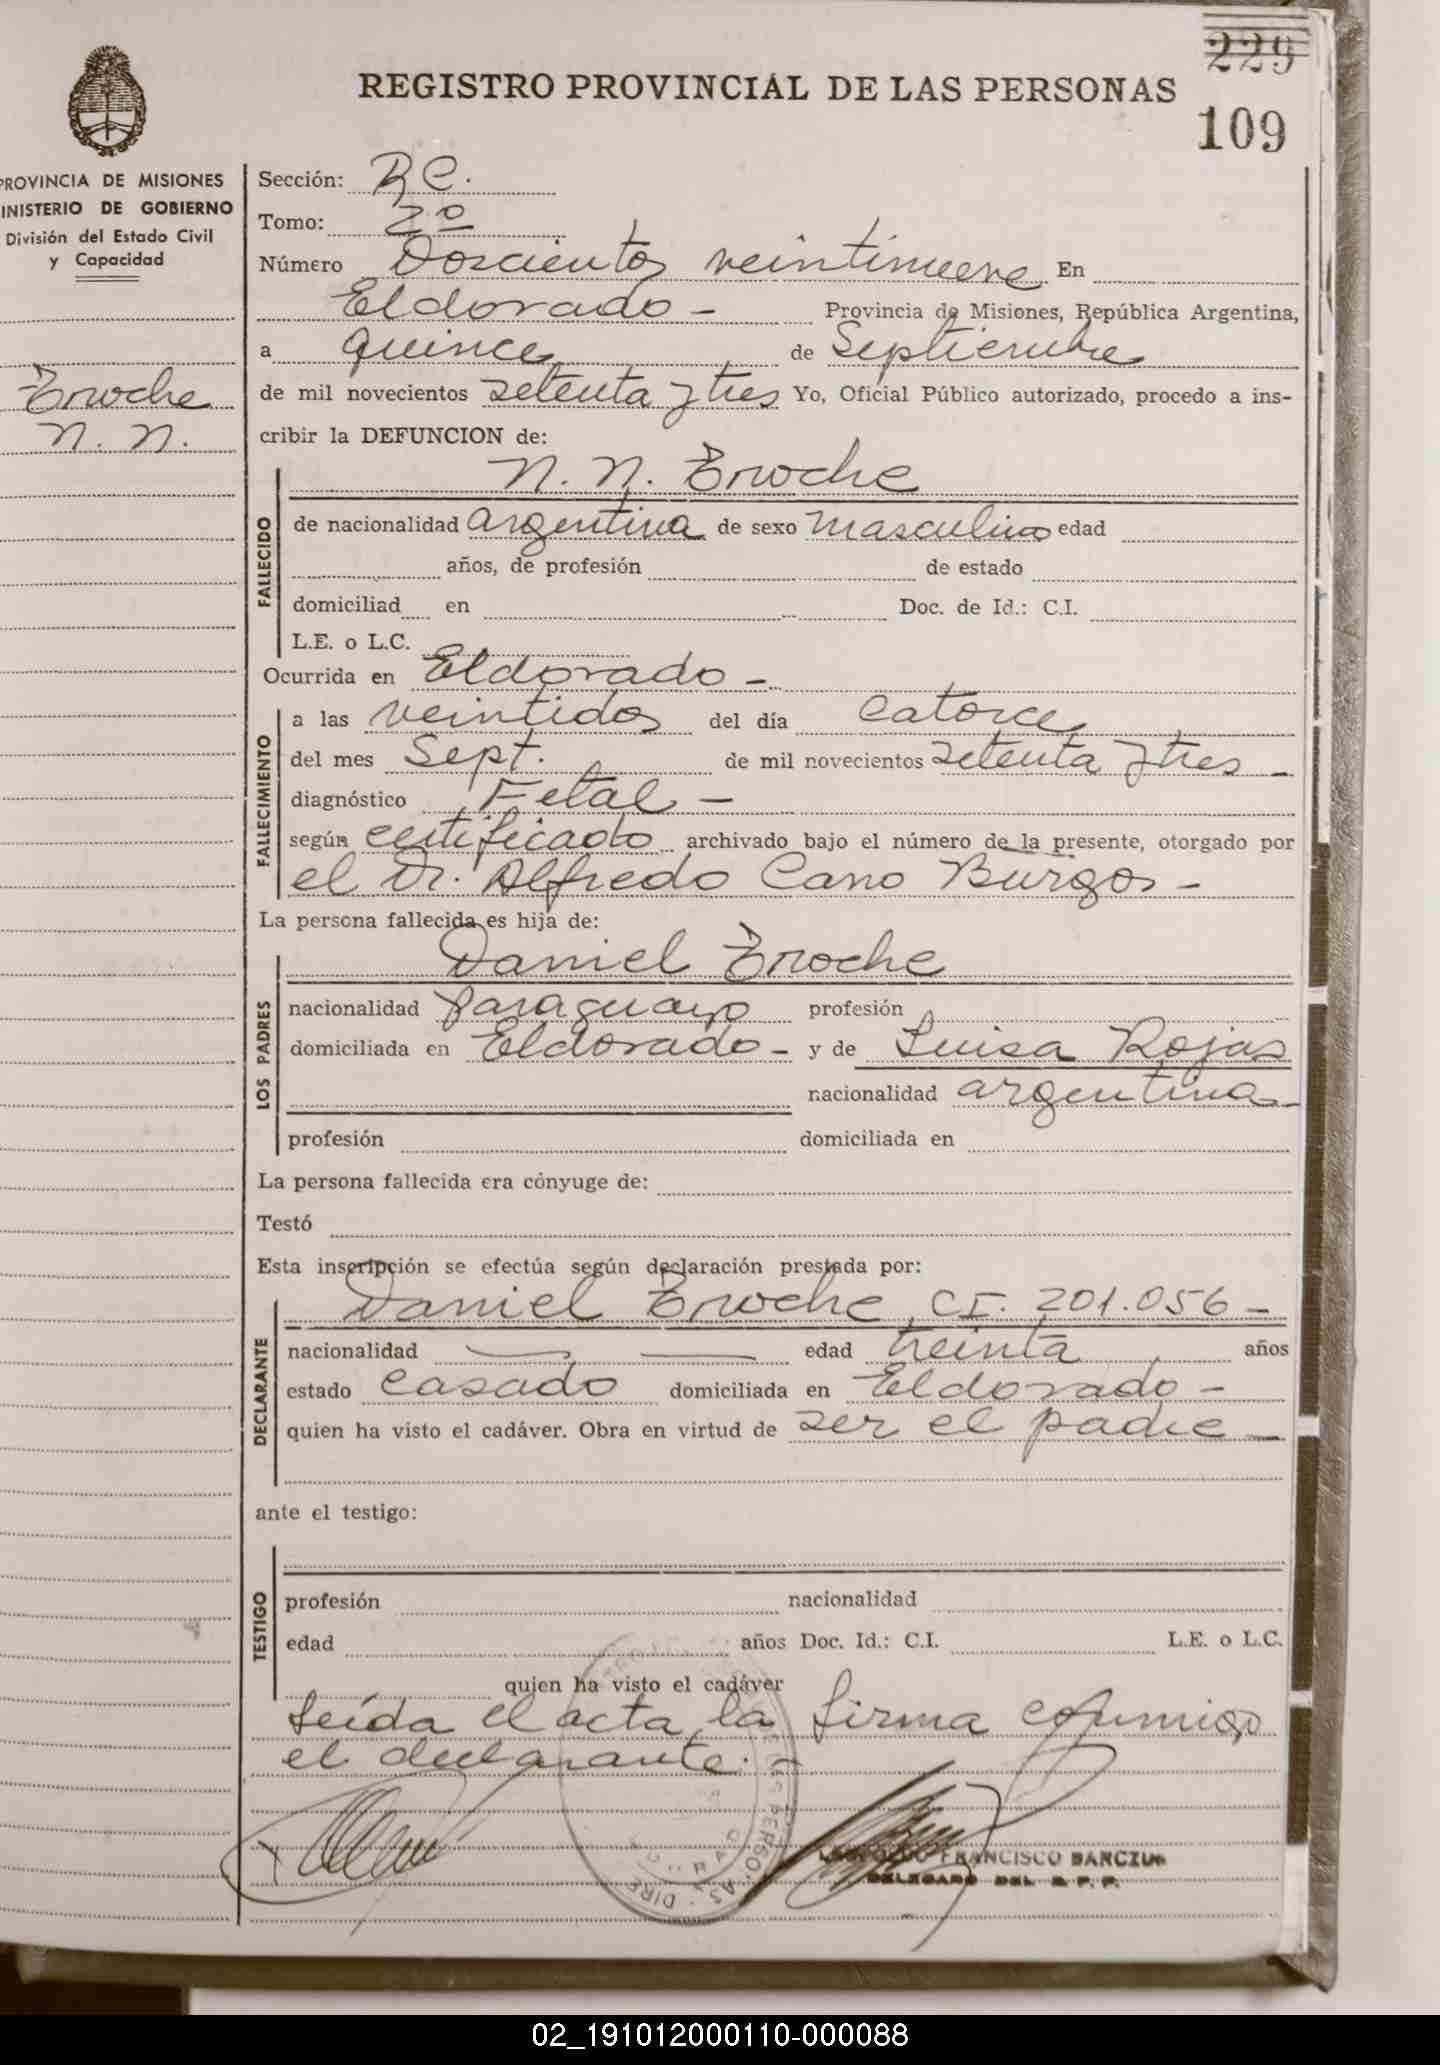 229
REGISTRO PROVINCIAL DE LAS PERSONAS
109
PROVINCIA DE MISIONES
MINISTERIO DE GOBIERNO
División del Estado Civil
y Capacidad
Sección: R C.
Tomo: 2º
Número Doscientos veintinueve En
Eldorado - Provincia de Misiones, República Argentina,
a quince de Septiembre
de mil novecientos setenta y tres Yo, Oficial Público autorizado, procedo a ins-
cribir la DEFUNCION de:
Troche
N. N.
N. N. Troche
FALLECIDO
de nacionalidad argentina de sexo masculino edad
años, de profesión de estado
domiciliad en Doc. de Id.: C.I.
L.E. o L.C.
Ocurrida en Eldorado -
FALLECIMIENTO
a las veintidos del día catorce
del mes Sept. de mil novecientos setenta y tres -
diagnóstico Fetal -
según certificado archivado bajo el número de la presente, otorgado por
el Dr. Alfredo Cano Burgos -
La persona fallecida es hija de:
LOS PADRES
Daniel Troche
nacionalidad paraguayo profesión
domiciliada en Eldorado - y de Luisa Rojas
nacionalidad argentina -
profesión domiciliada en
La persona fallecida era cónyuge de:
Testó
Esta inscripción se efectúa según declaración prestada por:
DECLARANTE
Daniel Troche C.I. 201.056 -
nacionalidad — — edad treinta años
estado casado domiciliada en Eldorado -
quien ha visto el cadáver. Obra en virtud de ser el padre -
ante el testigo:
TESTIGO
profesión nacionalidad
edad años Doc. Id.: C.I. L.E. o L.C.
quien ha visto el cadáver
Leída el acta, la firma conmigo
el declarante. -
FRANCISCO
DELEGADO DEL R.P.P.
02_191012000110-000088